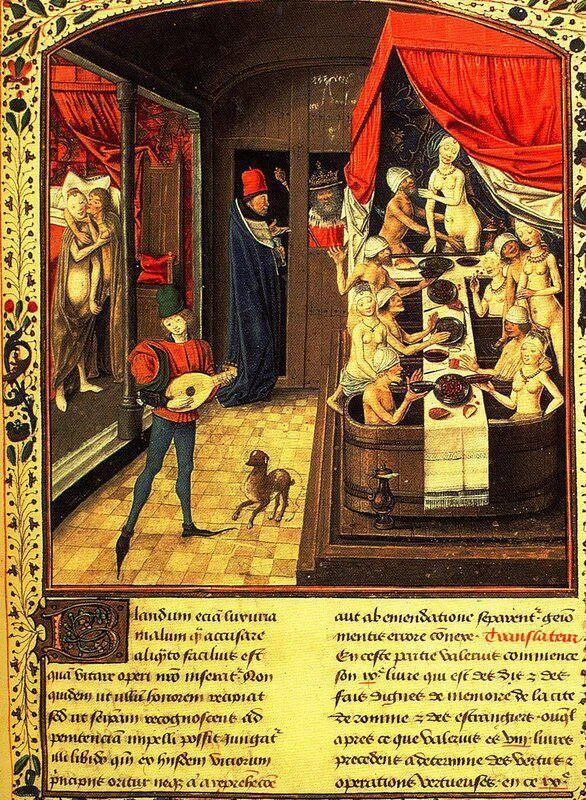 Blandum eciā luxuria
malum q̄ accusare
aliq̄to facilius est
quā vitare operi nr̄o inserat̄ Non
quidem ut ullū honorem recipiat
sed ut seipam recognoscens ad
penitenciā impelli possit Iungat̄
illi libido qm̄ ex hisdem viciorum
pͥncipiis oritur neq; a reprehēcōe
aut ab emendatione separent̄ gemī
mentis errore cōnexe. Translateur
En ceste partie valerius commence
son ixᵉ livre qui est des dis & des
fais dignes de memoire de la cite
de romme & des estrangiers. ouq̄l
apres ce que valerius es viij livres
precedens a determine des vertus &
operations vertueuses. en ce ixᵉ